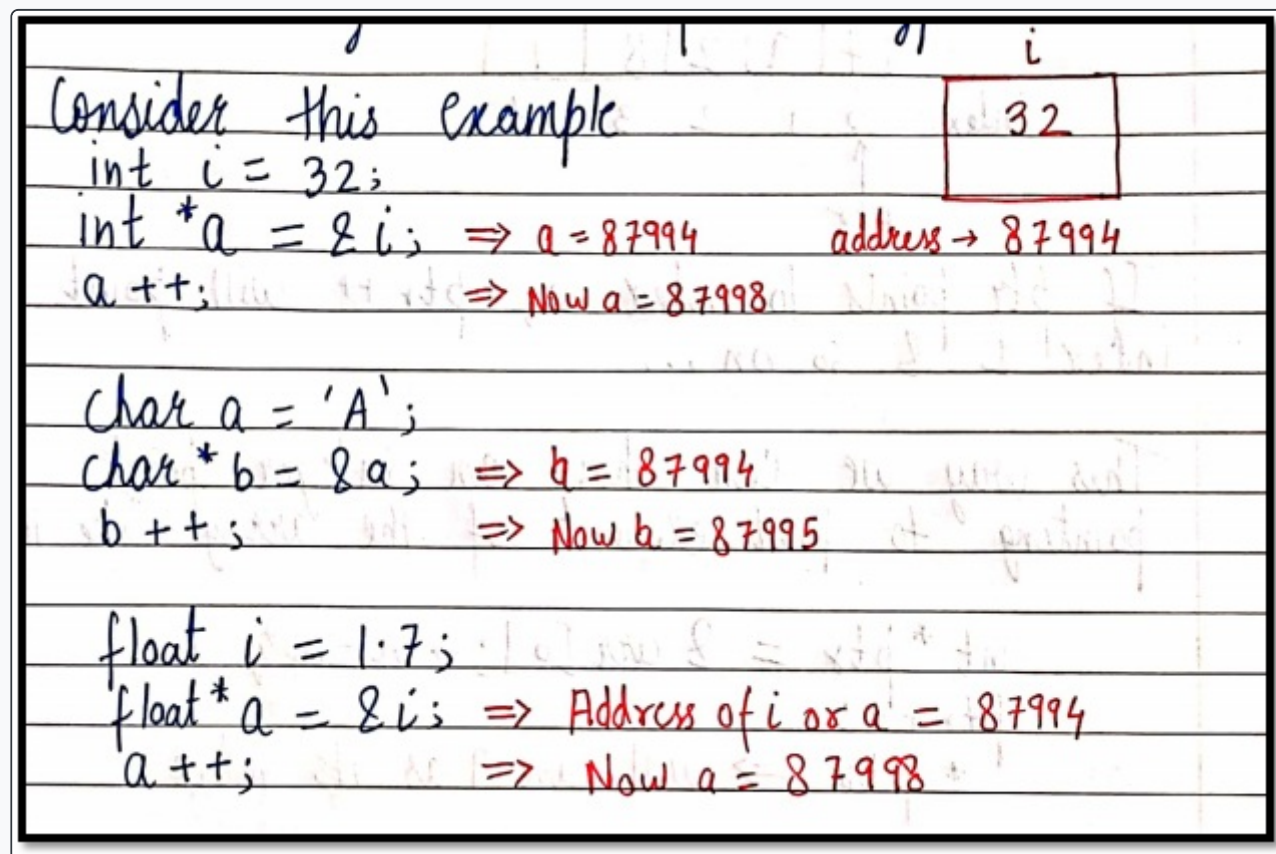 i
Consider this example
32
int i = 32;
int *a = &i; ⇒ a = 87994 address → 87994
a ++; ⇒ Now a = 87998
char a = 'A';
char* b = &a; ⇒ b = 87994
b ++; ⇒ Now b = 87995
float i = 1.7;
float* a = &i; ⇒ Address of i or a = 87994
a ++; ⇒ Now a = 87998